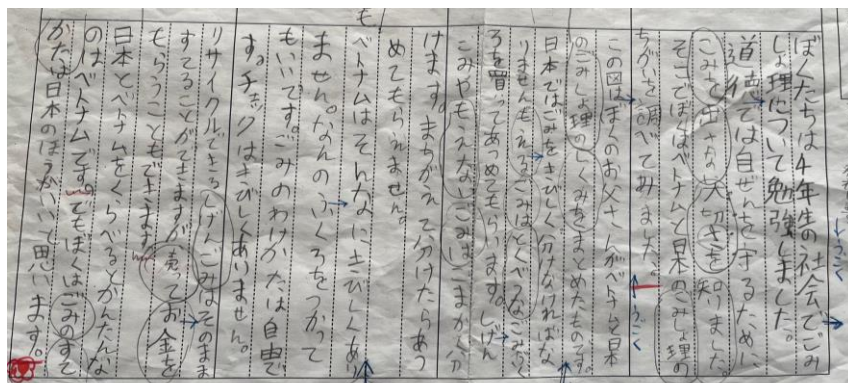 ぼくたちは4年生の社会でごみ
しょ理について勉強しました。
道徳では自ぜんを守るために、
ごみを出さない大切さを知りました。
そこでぼくはベトナムと日本のごみしょ理の
ちがいを調べてみました。
この図はぼくのお父さんがベトナムと日本
のごみしょ理のしくみをまとめたものです。
日本ではごみをきびしく分けなければな
りません。もえるごみはとくべつなごみぶく
ろを買ってあつめてもらいます。しげん
ごみやもえないごみはこまかく分
けます。まちがえて分けたらあつ
めてもらえません。
ベトナムはそんなにきびしくあり
ません。なんのふくろをつかって
も
もいいです。ごみのわけかたは自由で
す。チェックはきびしくありません。
リサイクルできるしげんごみはそのまま
すてることができますが、売ってお金を
もらうこともできます。
日本とベトナムをくらべるとかんたんな
のはベトナムです。でもぼくはごみのすて
かたは日本のほうがいいと思います。